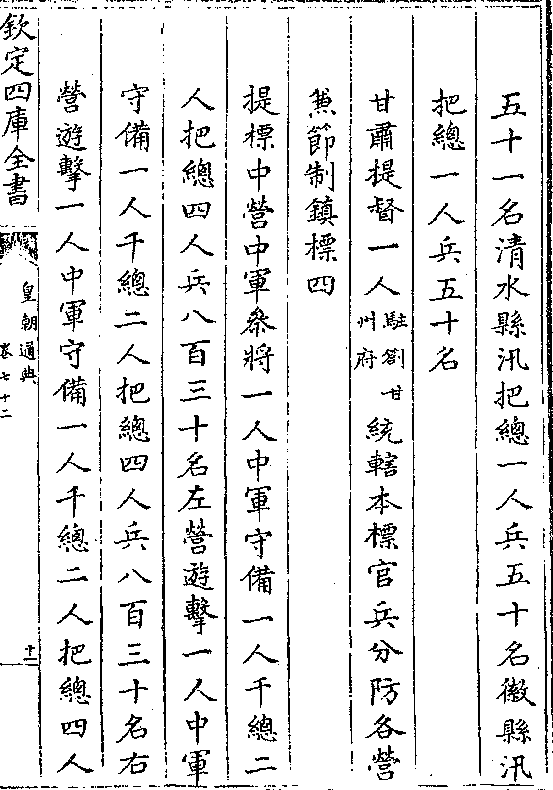 五十一名清水縣汛把總一人兵五十名徽縣汛
把總一人兵五十名
甘肅提督一人駐劄甘州府統轄本標官兵分防各營
兼節制鎮標四
提標中營中軍叅將一人中軍守備一人千總二
人把總四人兵八百三十名左營遊擊一人中軍
守備一人千總二人把總四人兵八百三十名右
營遊擊一人中軍守備一人千總二人把總四人
欽定四庫全書
皇朝通典
卷七十二
十二